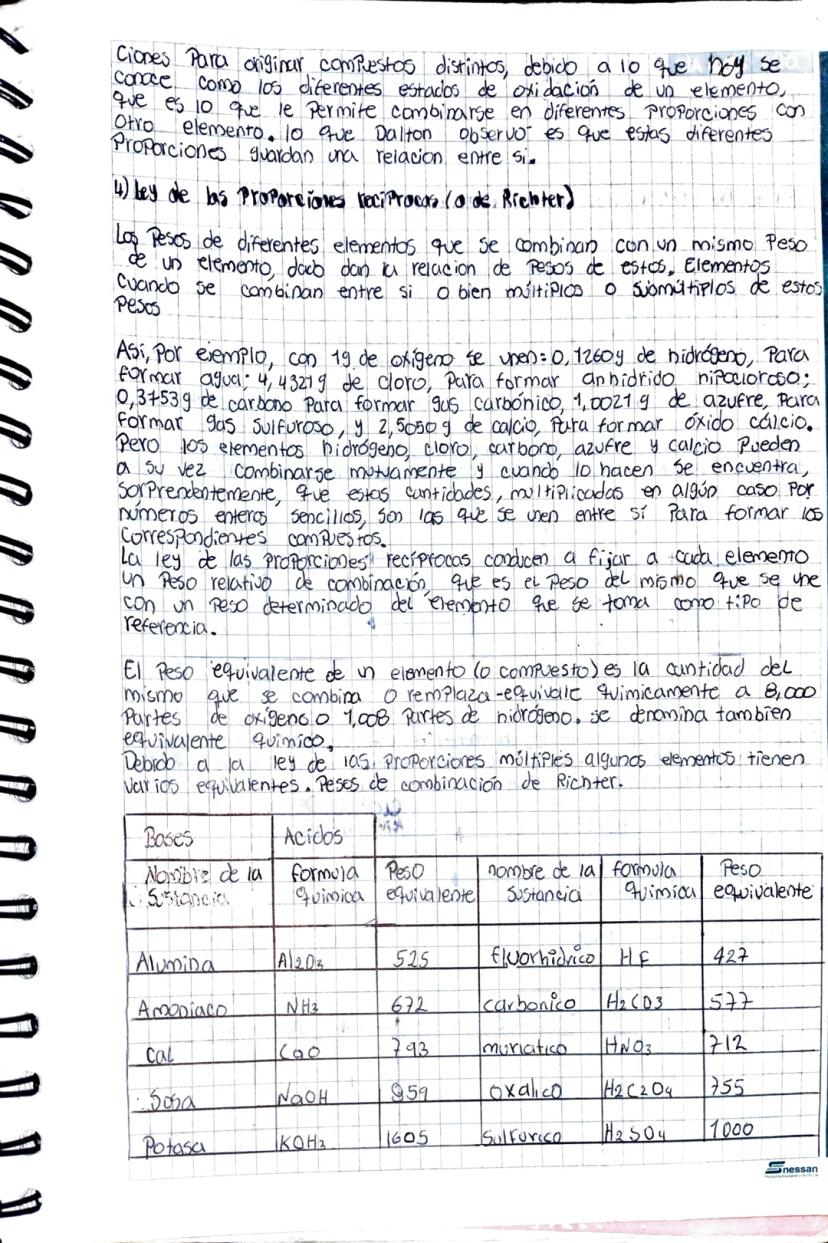 Ciones Para originar compuestos distintos, debido a lo que hoy se
conoce como los diferentes estados de oxidación de un elemento,
que es lo que le Permite combinarse en diferentes proporciones con
Otro elemento. lo que Dalton observo es que estas diferentes
Proporciones guardan una relacion entre si.
4) Ley de las Proporciones reciprocas (o de Richter)
Los Pesos de diferentes elementos que se combinan con un mismo Peso
de un elemento, dado dan la relacion de Pesos de estos, Elementos
Cuando se combinan entre si o bien múltiplos o submútiplos de estos
Pesos
Así, Por ejemplo, con 1g de oxígeno se unen: 0,1260g de hidrógeno, Para
formar agua; 4,4321g de cloro, Para formar anhidrido hipocloroso;
0,3753g de carbono Para formar gas carbónico, 1,0021g de azufre, Para
formar gas sulfuroso, y 2,5050g de calcio, Para formar óxido cálcio.
Pero los elementos hidrógeno, cloro, carbono, azufre y calcio Pueden
a su vez combinarse mutuamente y cuando lo hacen se encuentra,
Sorprendentemente, que estas cantidades, multiplicadas en algún caso Por
números enteros sencillos, son las que se unen entre sí Para formar los
Correspondientes compuestos.
La ley de las proporciones recíprocas conducen a fijar a cada elemento
un Peso relativo de combinación, que es el Peso del mismo que se une
con un Peso determinado del elemento que se toma como tipo de
referencia.
El Peso equivalente de un elemento (o compuesto) es la cantidad del
mismo que se combina o remplaza-equivale químicamente a 8,000
Partes de oxigeno o 1,008 Partes de hidrógeno. se denomina tambien
equivalente químico.
Debido a la ley de las proporciones múltiples algunos elementos tienen
varios equivalentes. Pesos de combinación de Richter.
Bases Acidos
Nombre de la Sustancia formula química Peso equivalente nombre de la Sustancia formula química Peso equivalente
Alumina Al2O3 525 fluorhidrico HF 427
Amoniaco NH3 672 carbonico H2CO3 577
cal CaO 793 muriatico HNO3 712
Sosa NaOH 859 oxalico H2C2O4 755
Potasa KOH3 1605 Sulfurico H2SO4 1000
nessan